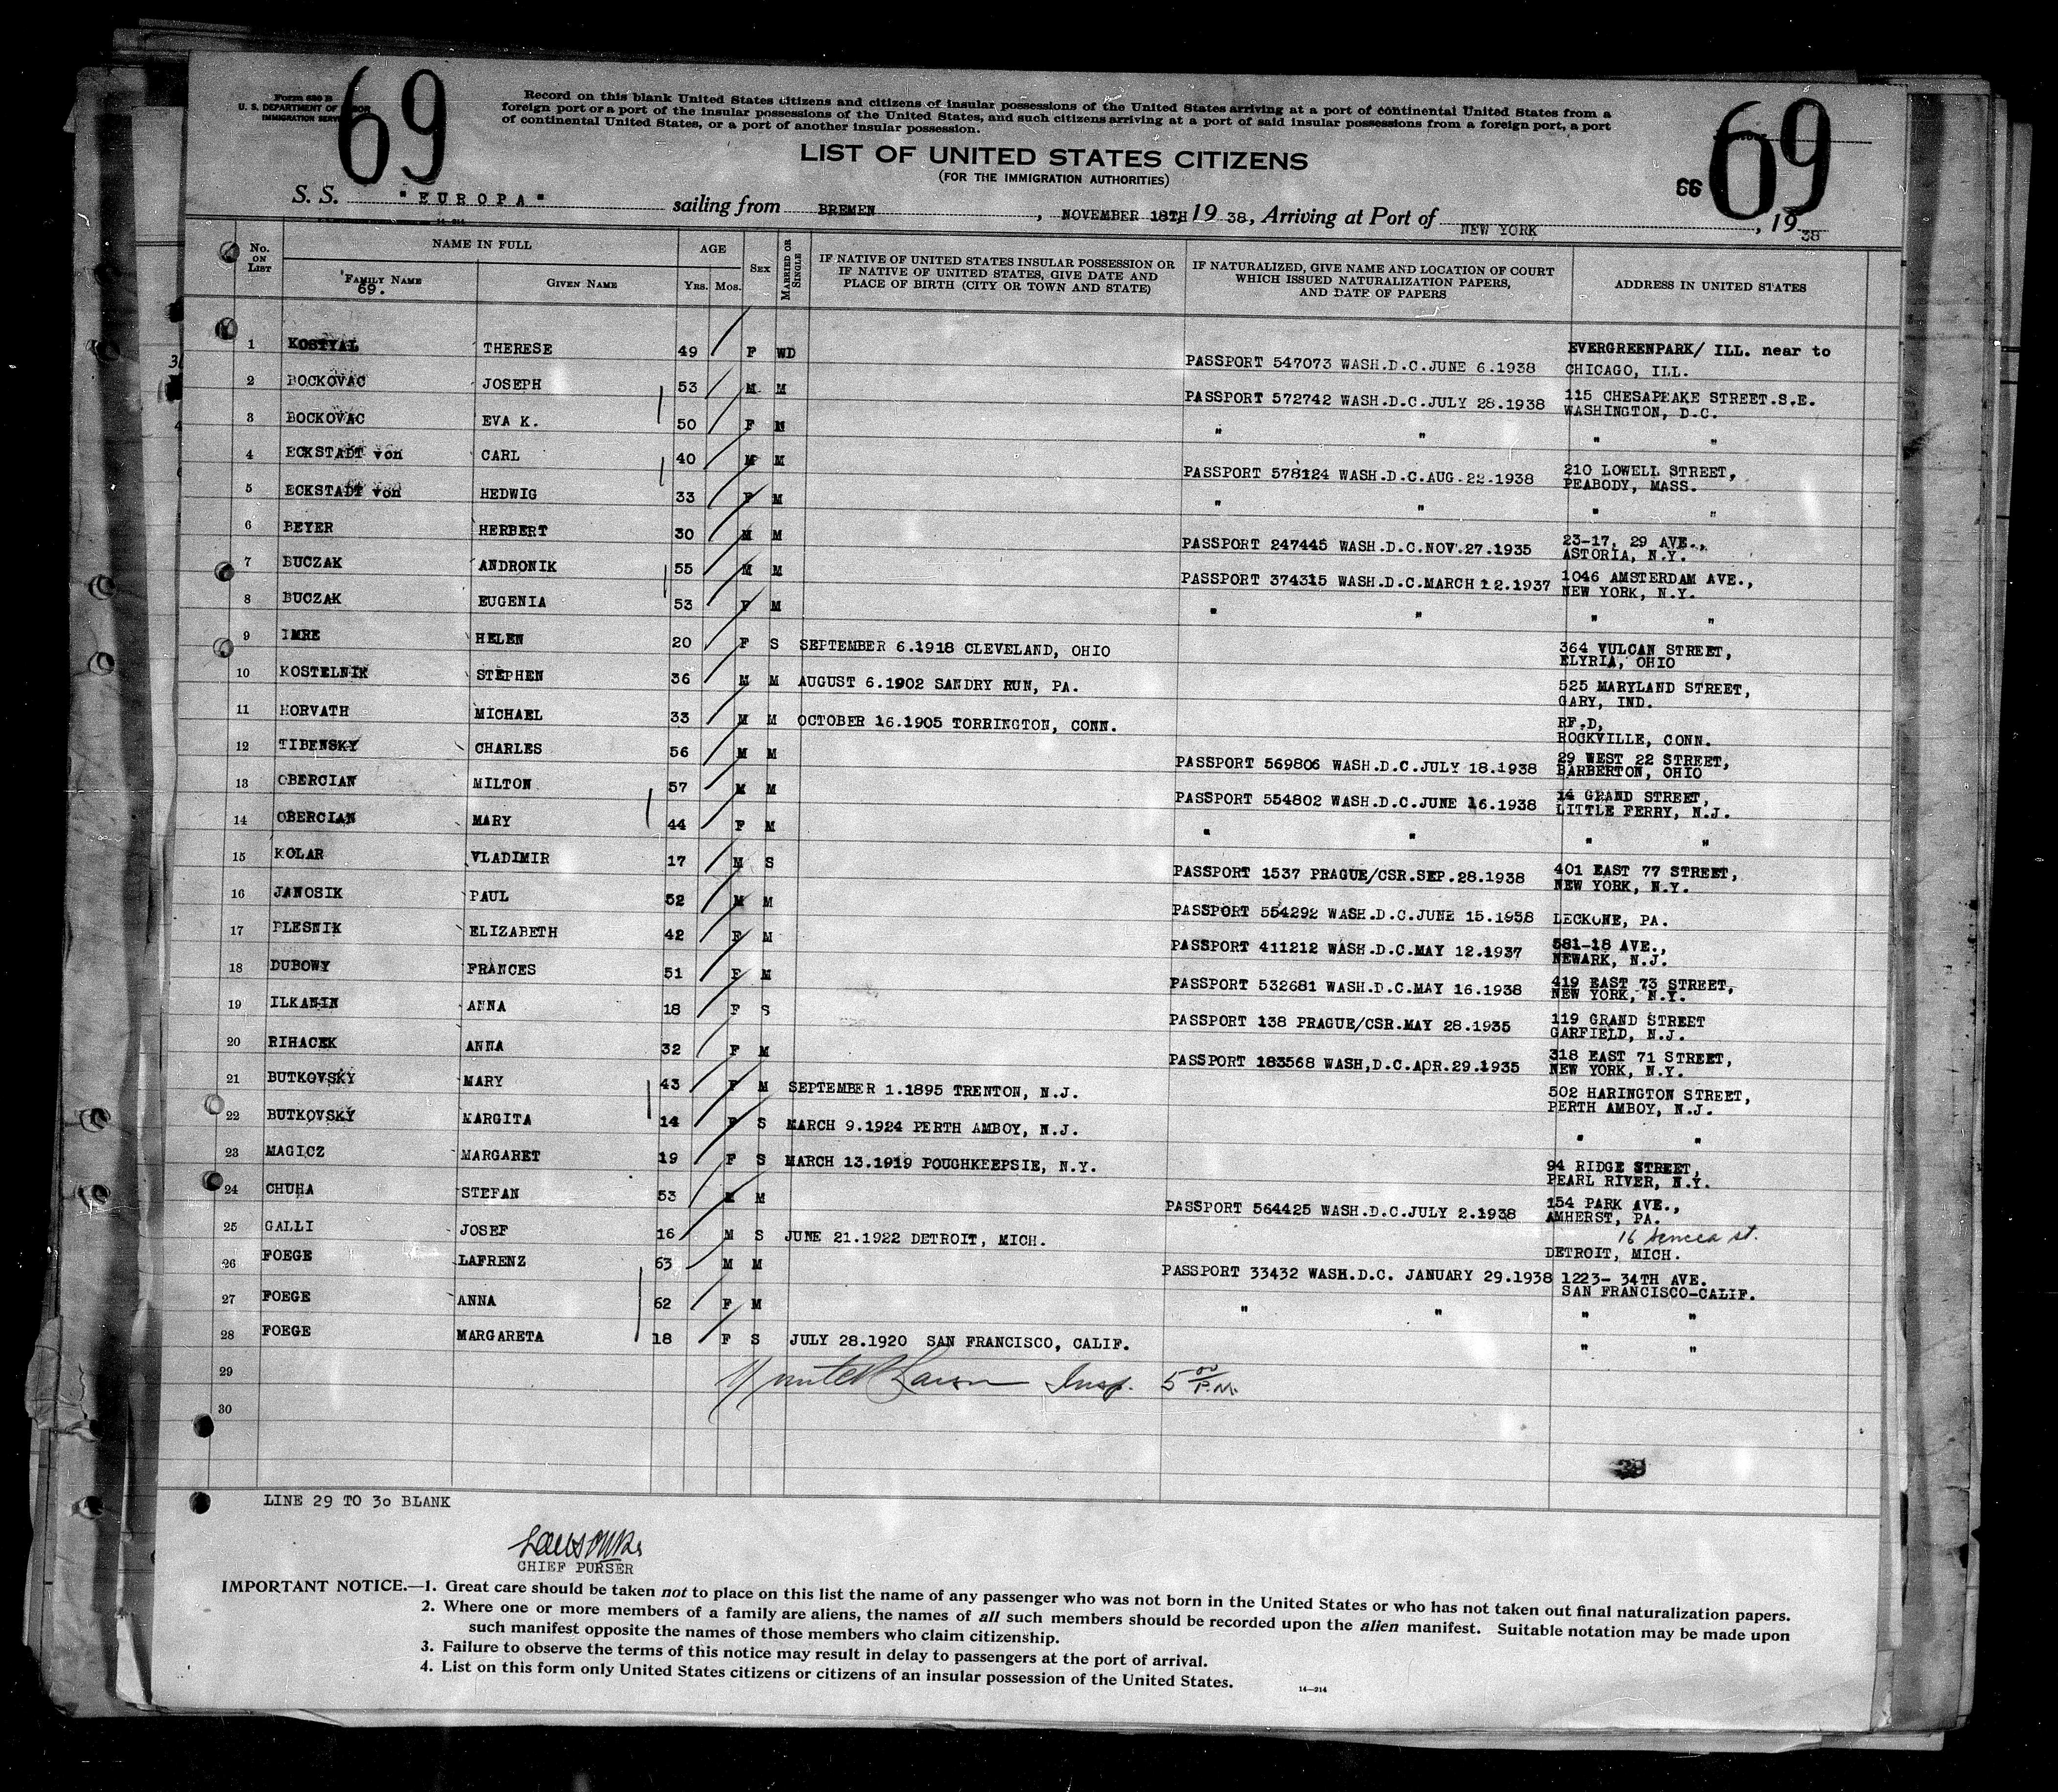 Form 630 B
U. S. DEPARTMENT OF LABOR
IMMIGRATION SERVICE
69
Record on this blank United States citizens and citizens of insular possessions of the United States arriving at a port of continental United States from a
foreign port or a port of the insular possessions of the United States, and such citizens arriving at a port of said insular possessions from a foreign port, a port
of continental United States, or a port of another insular possession.
69
66
LIST OF UNITED STATES CITIZENS
(FOR THE IMMIGRATION AUTHORITIES)
S. S. "EUROPA" sailing from BREMEN, NOVEMBER 18TH, 19 38, Arriving at Port of NEW YORK, 19 38
14-214
No. ON LIST NAME IN FULL AGE SEX MARRIED OR SINGLE IF NATIVE OF UNITED STATES INSULAR POSSESSION OR IF NATIVE OF UNITED STATES, GIVE DATE AND PLACE OF BIRTH (CITY OR TOWN AND STATE) IF NATURALIZED, GIVE NAME AND LOCATION OF COURT WHICH ISSUED NATURALIZATION PAPERS, AND DATE OF PAPERS ADDRESS IN UNITED STATES
FAMILY NAME GIVEN NAME YRS. MOS.
69.
1 KOSTYAL THERESE 49 F WD PASSPORT 547073 WASH.D.C.JUNE 6.1938 EVERGREENPARK/ ILL. near to
CHICAGO, ILL.
2 BOCKOVAC JOSEPH 53 M M PASSPORT 572742 WASH.D.C.JULY 28.1938 115 CHESAPEAKE STREET.S.E.
WASHINGTON, D.C.
3 BOCKOVAC EVA K. 50 F M " " " "
4 ECKSTADT von CARL 40 M M PASSPORT 578124 WASH.D.C.AUG.22.1938 210 LOWELL STREET,
PEABODY, MASS.
5 ECKSTADT von HEDWIG 33 F M " " " "
6 BEYER HERBERT 30 M M PASSPORT 247445 WASH.D.C.NOV.27.1935 23-17, 29 AVE.,
ASTORIA, N.Y.
7 BUCZAK ANDRONIK 55 M M PASSPORT 374315 WASH.D.C.MARCH 12.1937 1046 AMSTERDAM AVE.,
NEW YORK, N.Y.
8 BUCZAK EUGENIA 53 F M " " " "
9 IMRE HELEN 20 F S SEPTEMBER 6.1918 CLEVELAND, OHIO 364 VULCAN STREET,
ELYRIA, OHIO
10 KOSTELNIK STEPHEN 36 M M AUGUST 6.1902 SANDRY RUN, PA. 525 MARYLAND STREET,
GARY, IND.
11 HORVATH MICHAEL 33 M M OCTOBER 16.1905 TORRINGTON, CONN. RF.D,
ROCKVILLE, CONN.
12 TIBENSKY CHARLES 56 M M PASSPORT 569806 WASH.D.C.JULY 18.1938 29 WEST 22 STREET,
BARBERTON, OHIO
13 OBERCIAN MILTON 57 M M PASSPORT 554802 WASH.D.C.JUNE 16.1938 14 GRAND STREET,
LITTLE FERRY, N.J.
14 OBERCIAN MARY 44 F M " " " "
15 KOLAR VLADIMIR 17 M S PASSPORT 1537 PRAGUE/CSR.SEP.28.1938 401 EAST 77 STREET,
NEW YORK, N.Y.
16 JANOSIK PAUL 52 M M PASSPORT 554292 WASH.D.C.JUNE 15.1938 LECKONE, PA.
17 PLESNIK ELIZABETH 42 F M PASSPORT 411212 WASH.D.C.MAY 12.1937 581-18 AVE.,
NEWARK, N.J.
18 DUBOWY FRANCES 51 F M PASSPORT 532681 WASH.D.C.MAY 16.1938 419 EAST 73 STREET,
NEW YORK, N.Y.
19 ILKANIN ANNA 18 F S PASSPORT 138 PRAGUE/CSR.MAY 28.1935 119 GRAND STREET
GARFIELD, N.J.
20 RIHACEK ANNA 32 F M PASSPORT 183568 WASH,D.C.APR.29.1935 318 EAST 71 STREET,
NEW YORK, N.Y.
21 BUTKOVSKY MARY 43 F M SEPTEMBER 1.1895 TRENTON, N.J. 502 HARINGTON STREET,
PERTH AMBOY, N.J.
22 BUTKOVSKY MARGITA 14 F S MARCH 9.1924 PERTH AMBOY, N.J. " "
23 MAGICZ MARGARET 19 F S MARCH 13.1919 POUGHKEEPSIE, N.Y. 94 RIDGE STREET,
PEARL RIVER, N.Y.
24 CHUHA STEFAN 53 M M PASSPORT 564425 WASH.D.C.JULY 2.1938 154 PARK AVE.,
AMHERST, PA.
25 GALLI JOSEF 16 M S JUNE 21.1922 DETROIT, MICH. 16 Seneca st.
DETROIT, MICH.
26 FOEGE LAFRENZ 63 M M PASSPORT 33432 WASH.D.C. JANUARY 29.1938 1223- 34TH AVE.
SAN FRANCISCO-CALIF.
27 FOEGE ANNA 62 F M " " " "
28 FOEGE MARGARETA 18 F S JULY 28.1920 SAN FRANCISCO, CALIF. " "
29 Insp. 5 00 P.M.
30
LINE 29 TO 30 BLANK
CHIEF PURSER
IMPORTANT NOTICE.—1. Great care should be taken not to place on this list the name of any passenger who was not born in the United States or who has not taken out final naturalization papers.
2. Where one or more members of a family are aliens, the names of all such members should be recorded upon the alien manifest. Suitable notation may be made upon
such manifest opposite the names of those members who claim citizenship.
3. Failure to observe the terms of this notice may result in delay to passengers at the port of arrival.
4. List on this form only United States citizens or citizens of an insular possession of the United States.
14—214